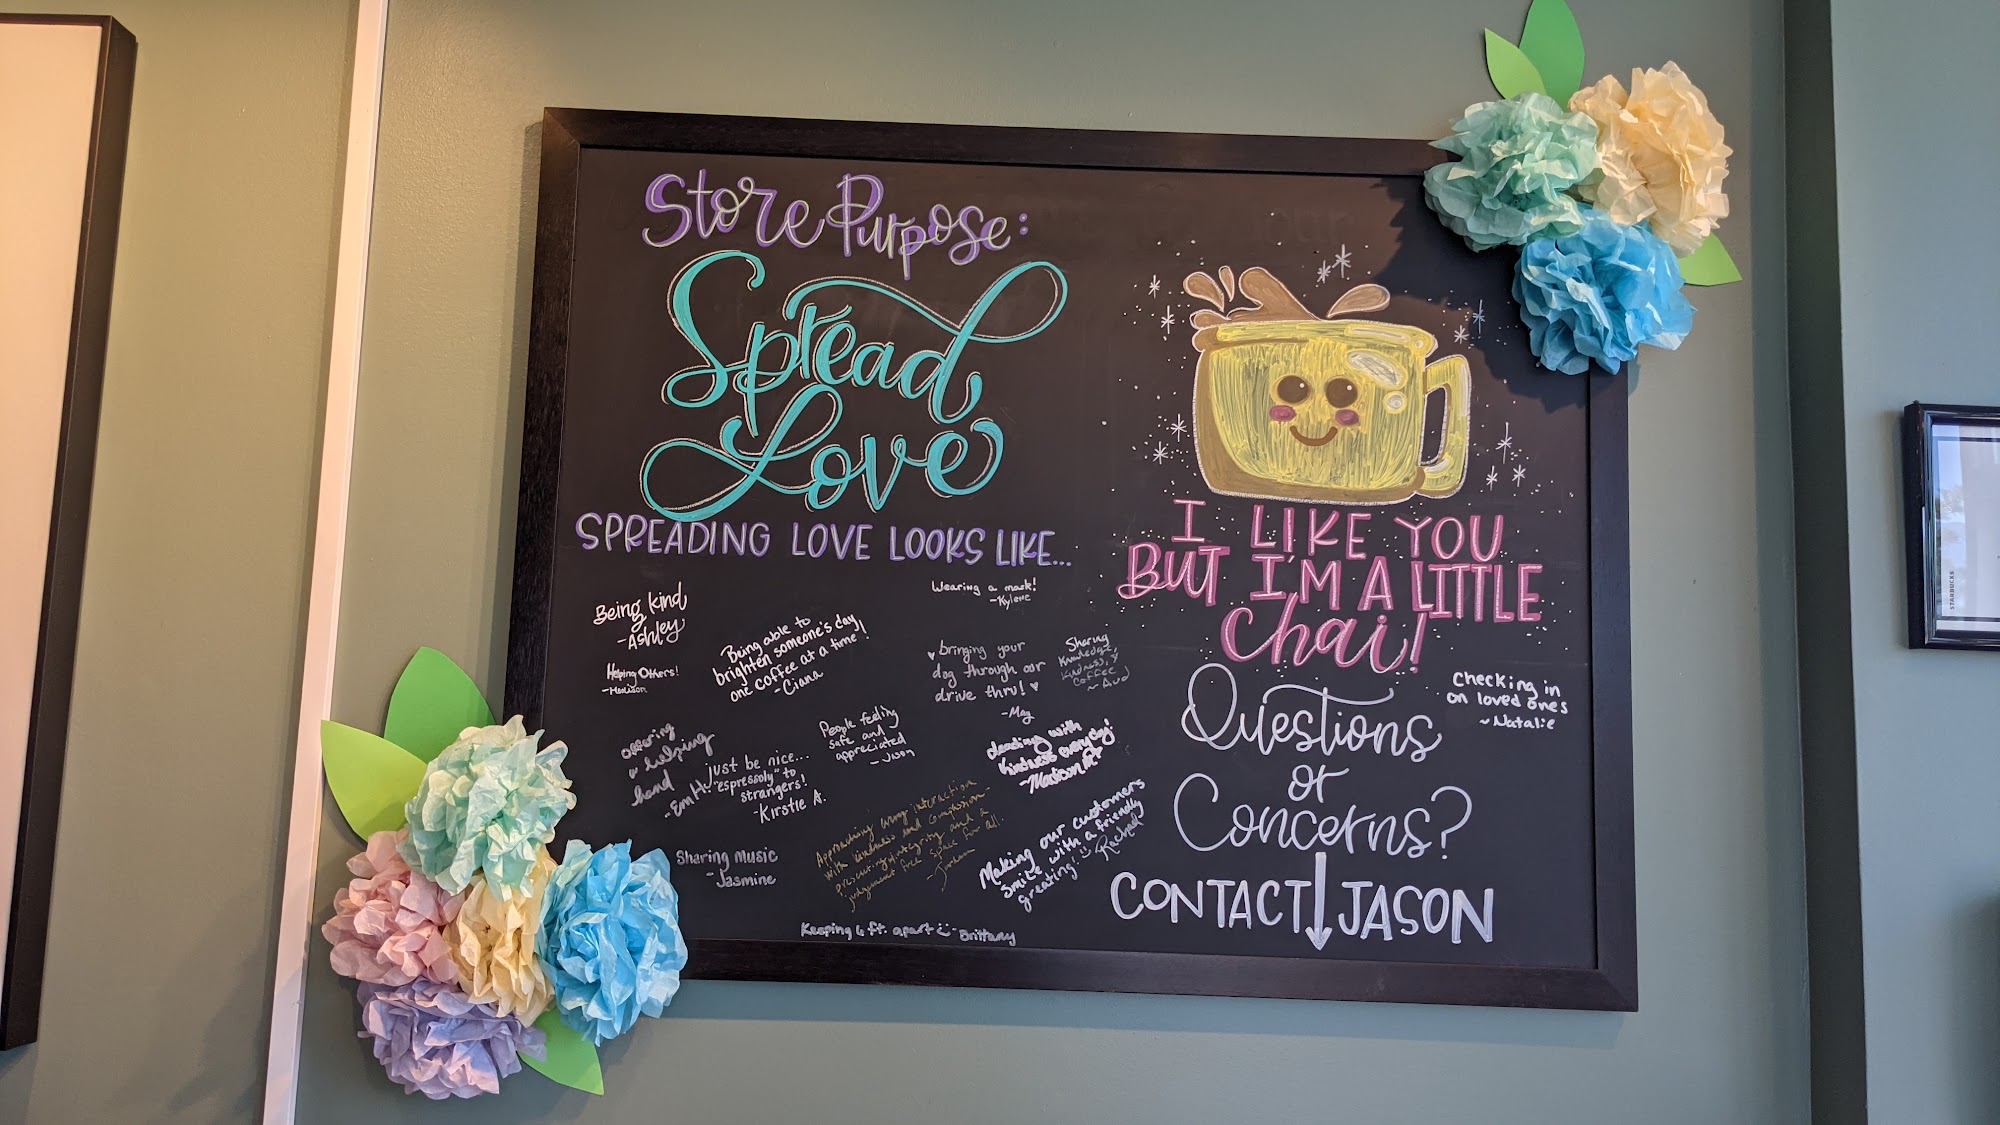 Store Purpose:
Spread
Love
SPREADING LOVE LOOKS LIKE...
Being kind
-Ashley
Wearing a mask!
-Kylene
Helping Others!
-Madison
Being able to
brighten someone's day,
one coffee at a time!
-Ciana
bringing your
dog through our
drive thru!
-May
Sharing
Knowledge,
Kindness, &
Coffee
~ Aud
offering
a helping
hand
-Em H.
just be nice...
"espressoly" to
strangers!
-Kirstie A.
People feeling
safe and
appreciated
- Jason
leading with
kindness everyday!
-Madison
Approaching every interaction
with kindness and compassion-
integrity and a
judgement free space for all.
-Jordan
Making our customers
smile with a friendly
greating!
Rachael
Sharing Music
-Jasmine
Keeping 6 ft. apart -Brittany
I LIKE YOU
BUT I'M A LITTLE
Chai!
Checking in
on loved ones
~Natalie
Questions
or
Concerns?
CONTACT JASON
STARBUCKS